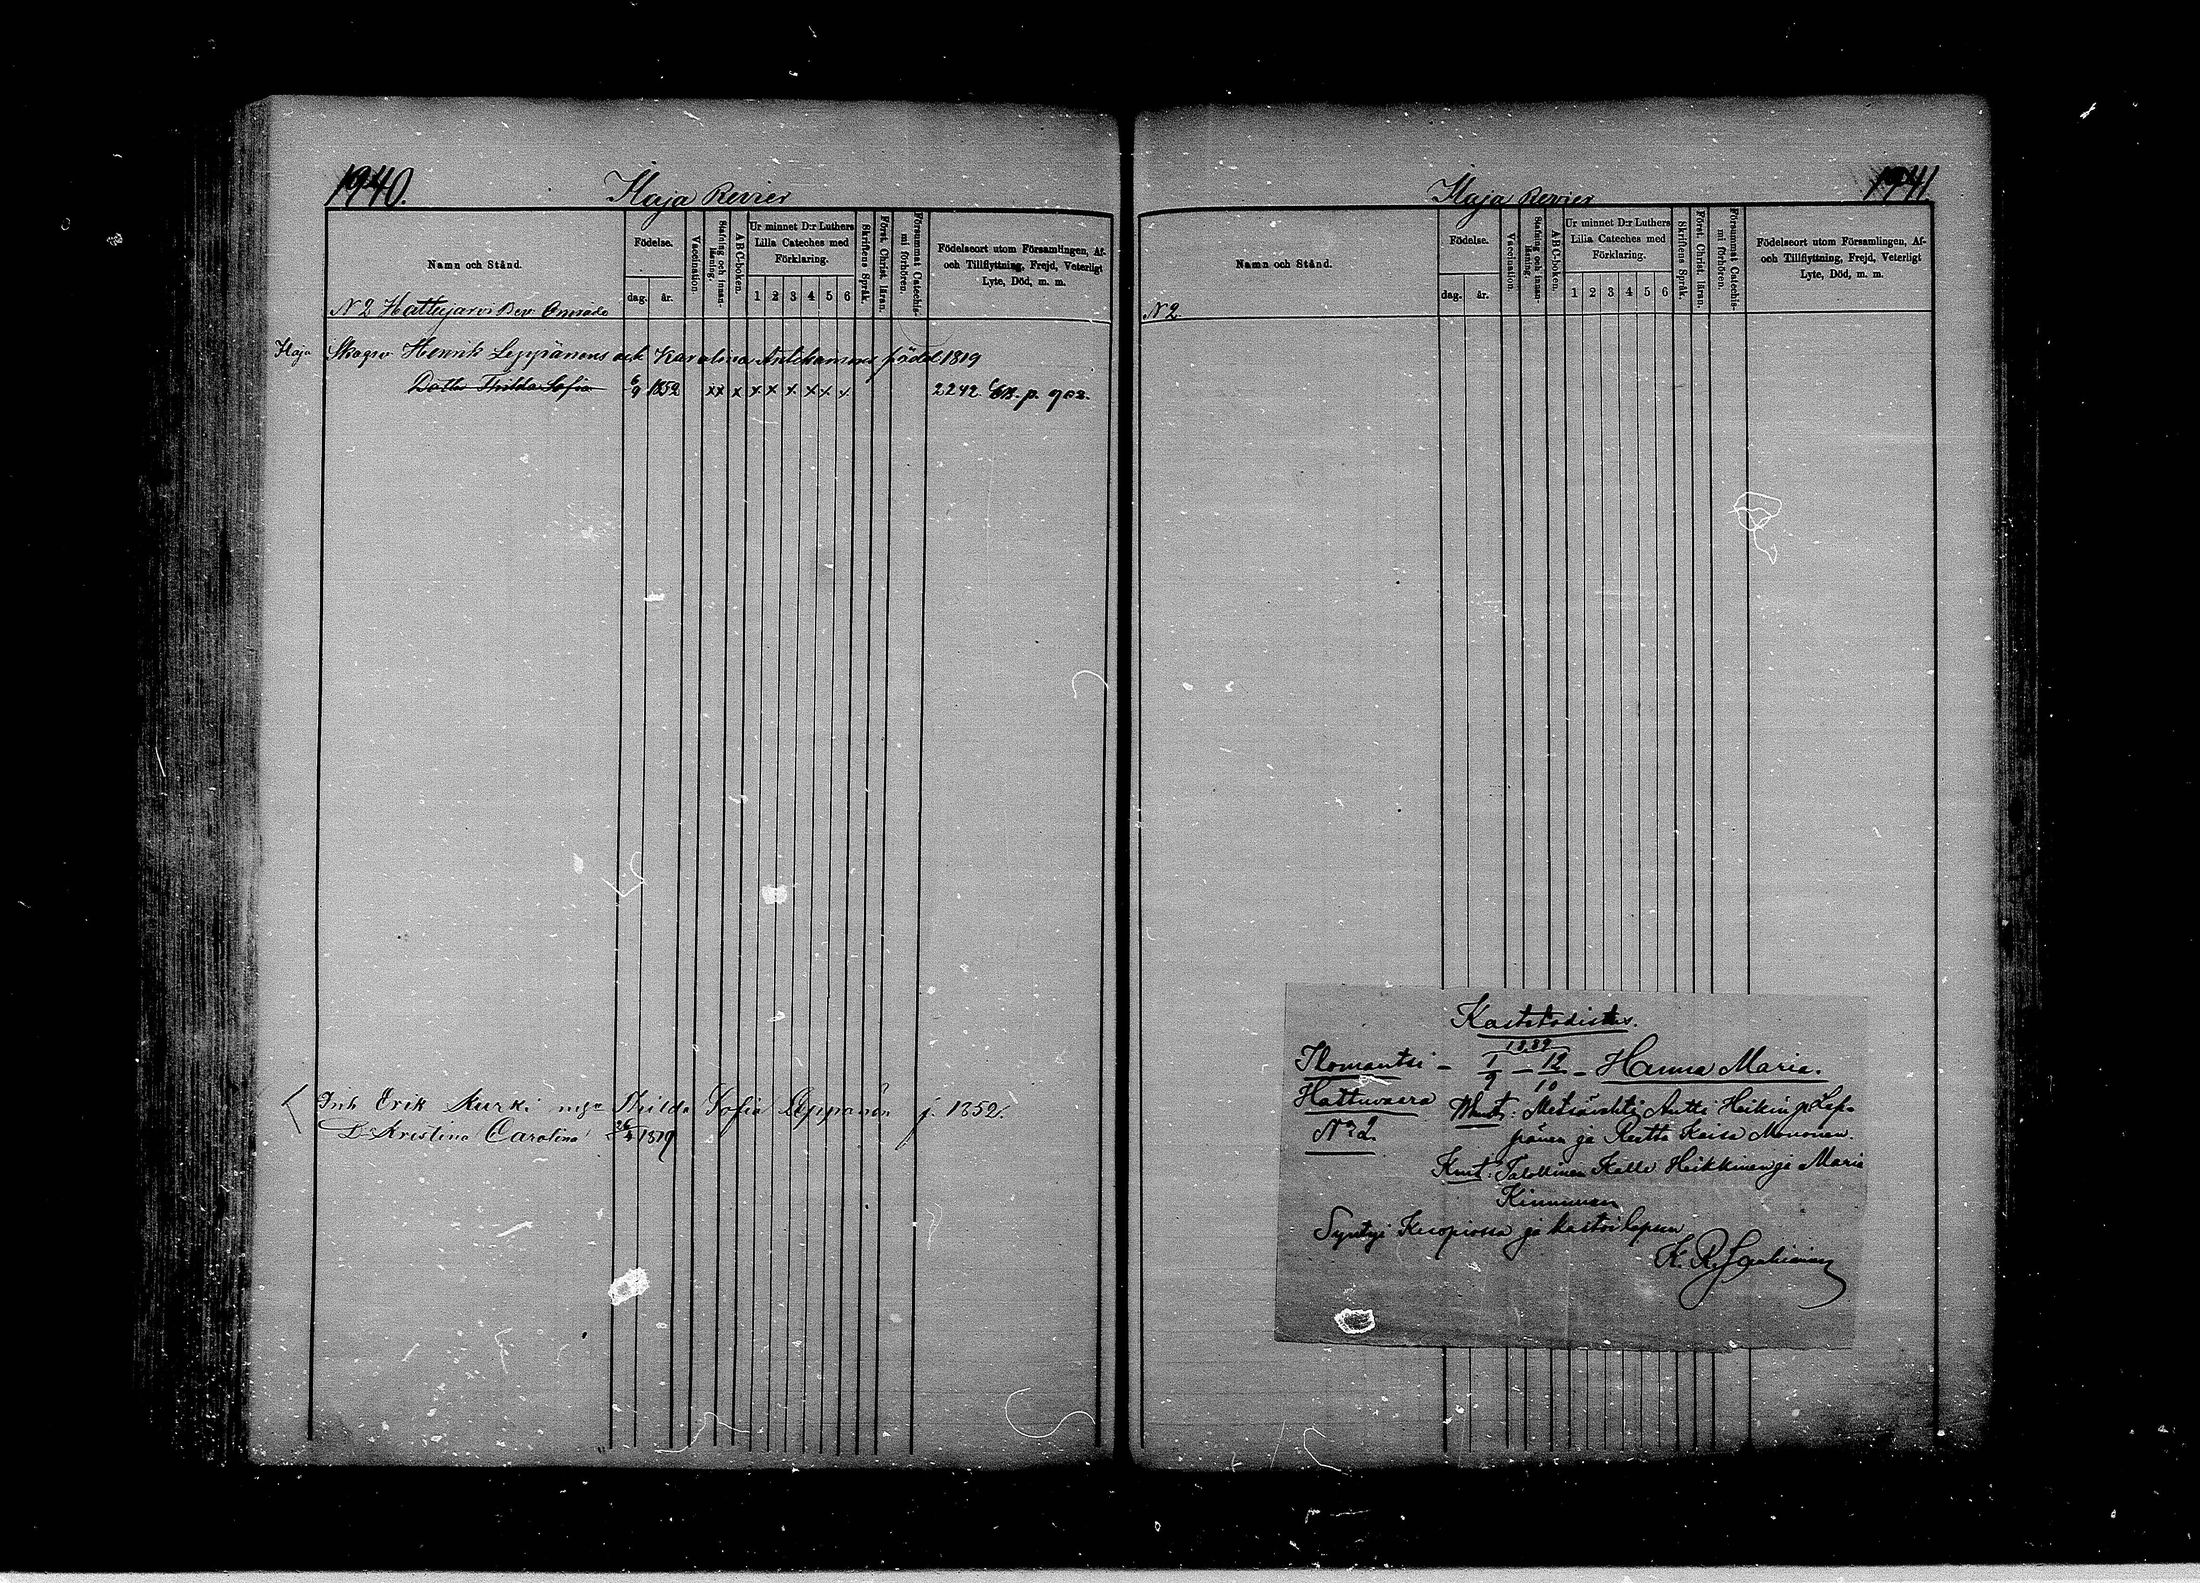 1940.
Haja Revier
Namn och Stånd.
Födelse.
dag. år.
Vaccination.
Stafning och innanläsning.
ABC-boken.
Ur minnet D:r Luthers
Lilla Cateches med
Förklaring.
1 2 3 4 5 6
Skriftens Språk.
Först. Christ. läran.
Försummat Catechismi förhören.
Födelseort utom Församlingen, Af-
och Tillflyttning, Frejd, Veterligt
Lyte, Död, m. m.
N 2 Hattujärvi Bev. Område
Haja Skogsv. Henrik Leppänens och Karolina född 1819
Dotter Thilda Sofia 6/9 1852 xx x x x x x x x 2242 p. 902.
Inh Erik Kurki Thilda Sofia Leppänen f. 1852.
D. Kristina Carolina 26/4 1879
1941.
Haja Revier
Namn och Stånd.
Födelse.
dag. år.
Vaccination.
Stafning och innanläsning.
ABC-boken.
Ur minnet D:r Luthers
Lilla Cateches med
Förklaring.
1 2 3 4 5 6
Skriftens Språk.
Först. Christ. läran.
Försummat Catechismi förhören.
Födelseort utom Församlingen, Af-
och Tillflyttning, Frejd, Veterligt
Lyte, Död, m. m.
N 2.
Kastetodistus.
1889
Ilomantsi – 1/9 – 12/10 – Hanna Maria.
Hattuvaara Vhmt: Metsävahti Antti Heikinp. Lep-
No 2 pänen ja Reetta Kaisa Mononen.
Kmt: Talollinen Kalle Heikkinen ja Maria
Kinnunen
Syntyi Kuopiossa ja kastoi lapsen
K. R.